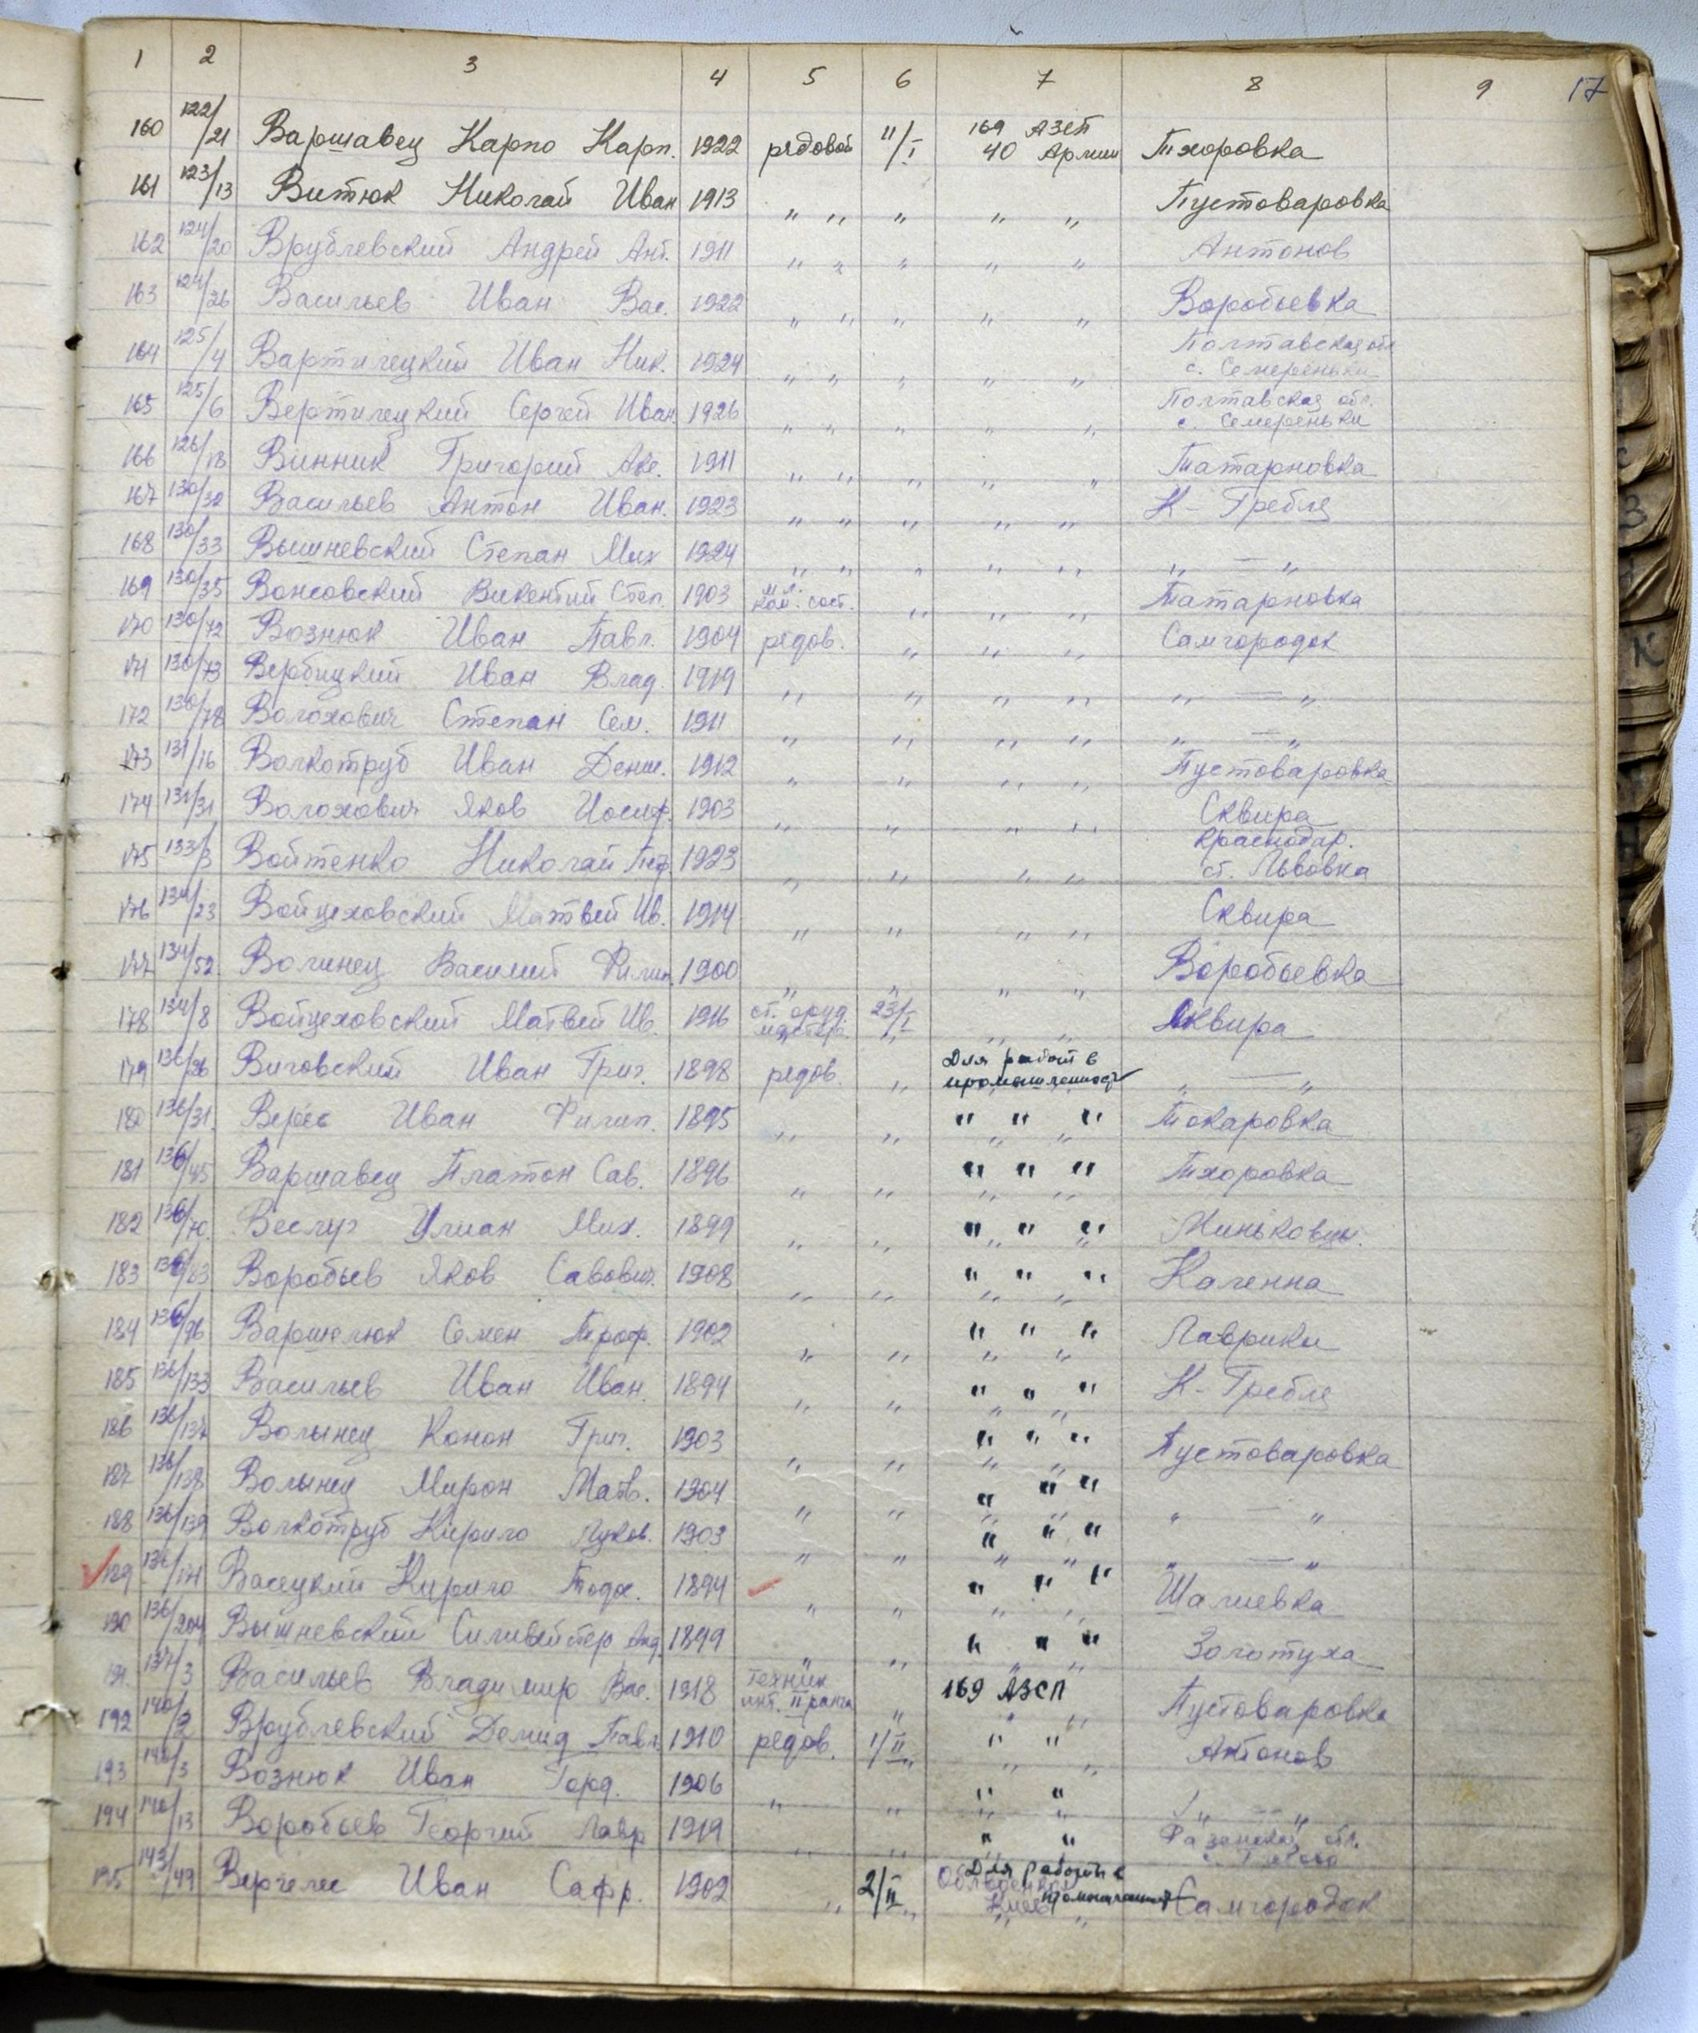 1 2 3 4 5 6 7 8 9 17
160 122/21 Варшавец Карпо Карп. 1922 рядовой 11/I 169 АЗСП 40 Армии Тхоровка
161 123/13 Витюк Николай Иван 1913 " " " " " Пустоваровка
162 124/20 Врублевский Андрей Ант. 1911 " " " " " Антонов
163 124/26 Васильев Иван Вас. 1922 " " " " " Воробьевка
164 125/4 Вартилецкий Иван Ник. 1924 " " " " " Полтавская обл с. Семереньки
165 125/6 Вертилецкий Сергей Иван. 1926 " " " " " Полтавская обл. с. Семереньки
166 126/18 Винник Григорий Але. 1911 " " " " " Татарновка
167 130/32 Васильев Антон Иван. 1923 " " " " " К-Гребля
168 130/33 Вышневский Степан Мих 1924 " " " " " " — "
169 130/35 Вонсовский Викентий Степ. 1903 мл. ком. сост. " " " Татарновка
170 130/72 Вознюк Иван Павл. 1904 рядов. " " " Самгородок
171 130/73 Вербицкий Иван Влад. 1919 " " " " " — "
172 130/78 Волохович Степан Сем. 1911 " " " " " — "
173 131/16 Волкотруб Иван Денис. 1912 " " " " Пустоваровка
174 131/31 Волохович Яков Иосиф. 1903 " " " " Сквира
175 133/3 Войтенко Николай Петр 1923 " " " " Краснодар. ст. Львовка
176 134/23 Войцеховский Матвей Ив. 1914 " " " " Сквира
177 134/52 Волинец Василий Филип. 1900 " " " " Воробьевка
178 134/8 Войцеховский Матвей Ив. 1916 ст. оруд. мастер. 23/I " " Сквира
179 136/26 Виговский Иван Григ. 1898 рядов. " Для работ в промышленност " — "
180 136/31. Верес Иван Филип. 1895 " " " " " Токаровка
181 136/45 Варшавец Платон Сав. 1896 " " " " " Тхоровка
182 136/70. Улиан Мих. 1899 " " " " " Миньковцы.
183 136/83 Воробьев Яков Савович. 1908 " " " " " Каленна
184 136/96 Варшелюк Семен Троф. 1902 " " " " " Лаврики
185 136/133 Васильев Иван Иван. 1894 " " " " " К-Гребля
186 136/137 Волынец Конон Григ. 1903 " " " " " Пустоваровка
187 136/138 Волынец Мирон Матв. 1904 " " " " " " — "
188 136/139 Волкотруб Кирило Луков. 1903 " " " " " " — "
189 136/171 Васецкий Кирило Тодос. 1894 " " " " " Шалиевка
190 136/204 Вышневский Силивейстер Анд. 1899 " " " " " Золотуха
191. 137/3 Васильев Владимир Вас. 1918 Техник инт. II ранга " 169 АЗСП Пустоваровка
192 140/2 Врублевский Демид Павл. 1910 рядов. 1/II " " Антонов
193 140/3 Вознюк Иван Горд. 1906 " " " " " — "
194 140/13 Воробьев Георгий Лавр 1919 " " " " обл.
195 143/49 Вергелес Иван Сафр. 1902 " 2/II Для работы в Облвоенком Киев промышленност Самгородок